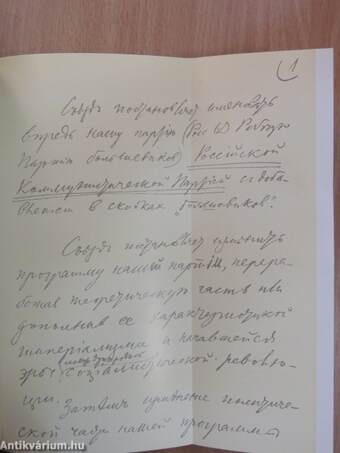 1
Съезд постановляет именовать
впредь нашу партію (Рос.
Партію большевиков) Россійской
Коммунистической Партіей с доба-
влением в скобках „большевиков".
Съезд постановляет изменить
программу нашей партіи, перера-
ботав теоретическую часть или
дополнив ее характеристикой
имперіализма и начавшейся
эры международной соціалистической револю-
ціи.
Затем изменение политиче-
ской части нашей программы
Antikvárium.hu